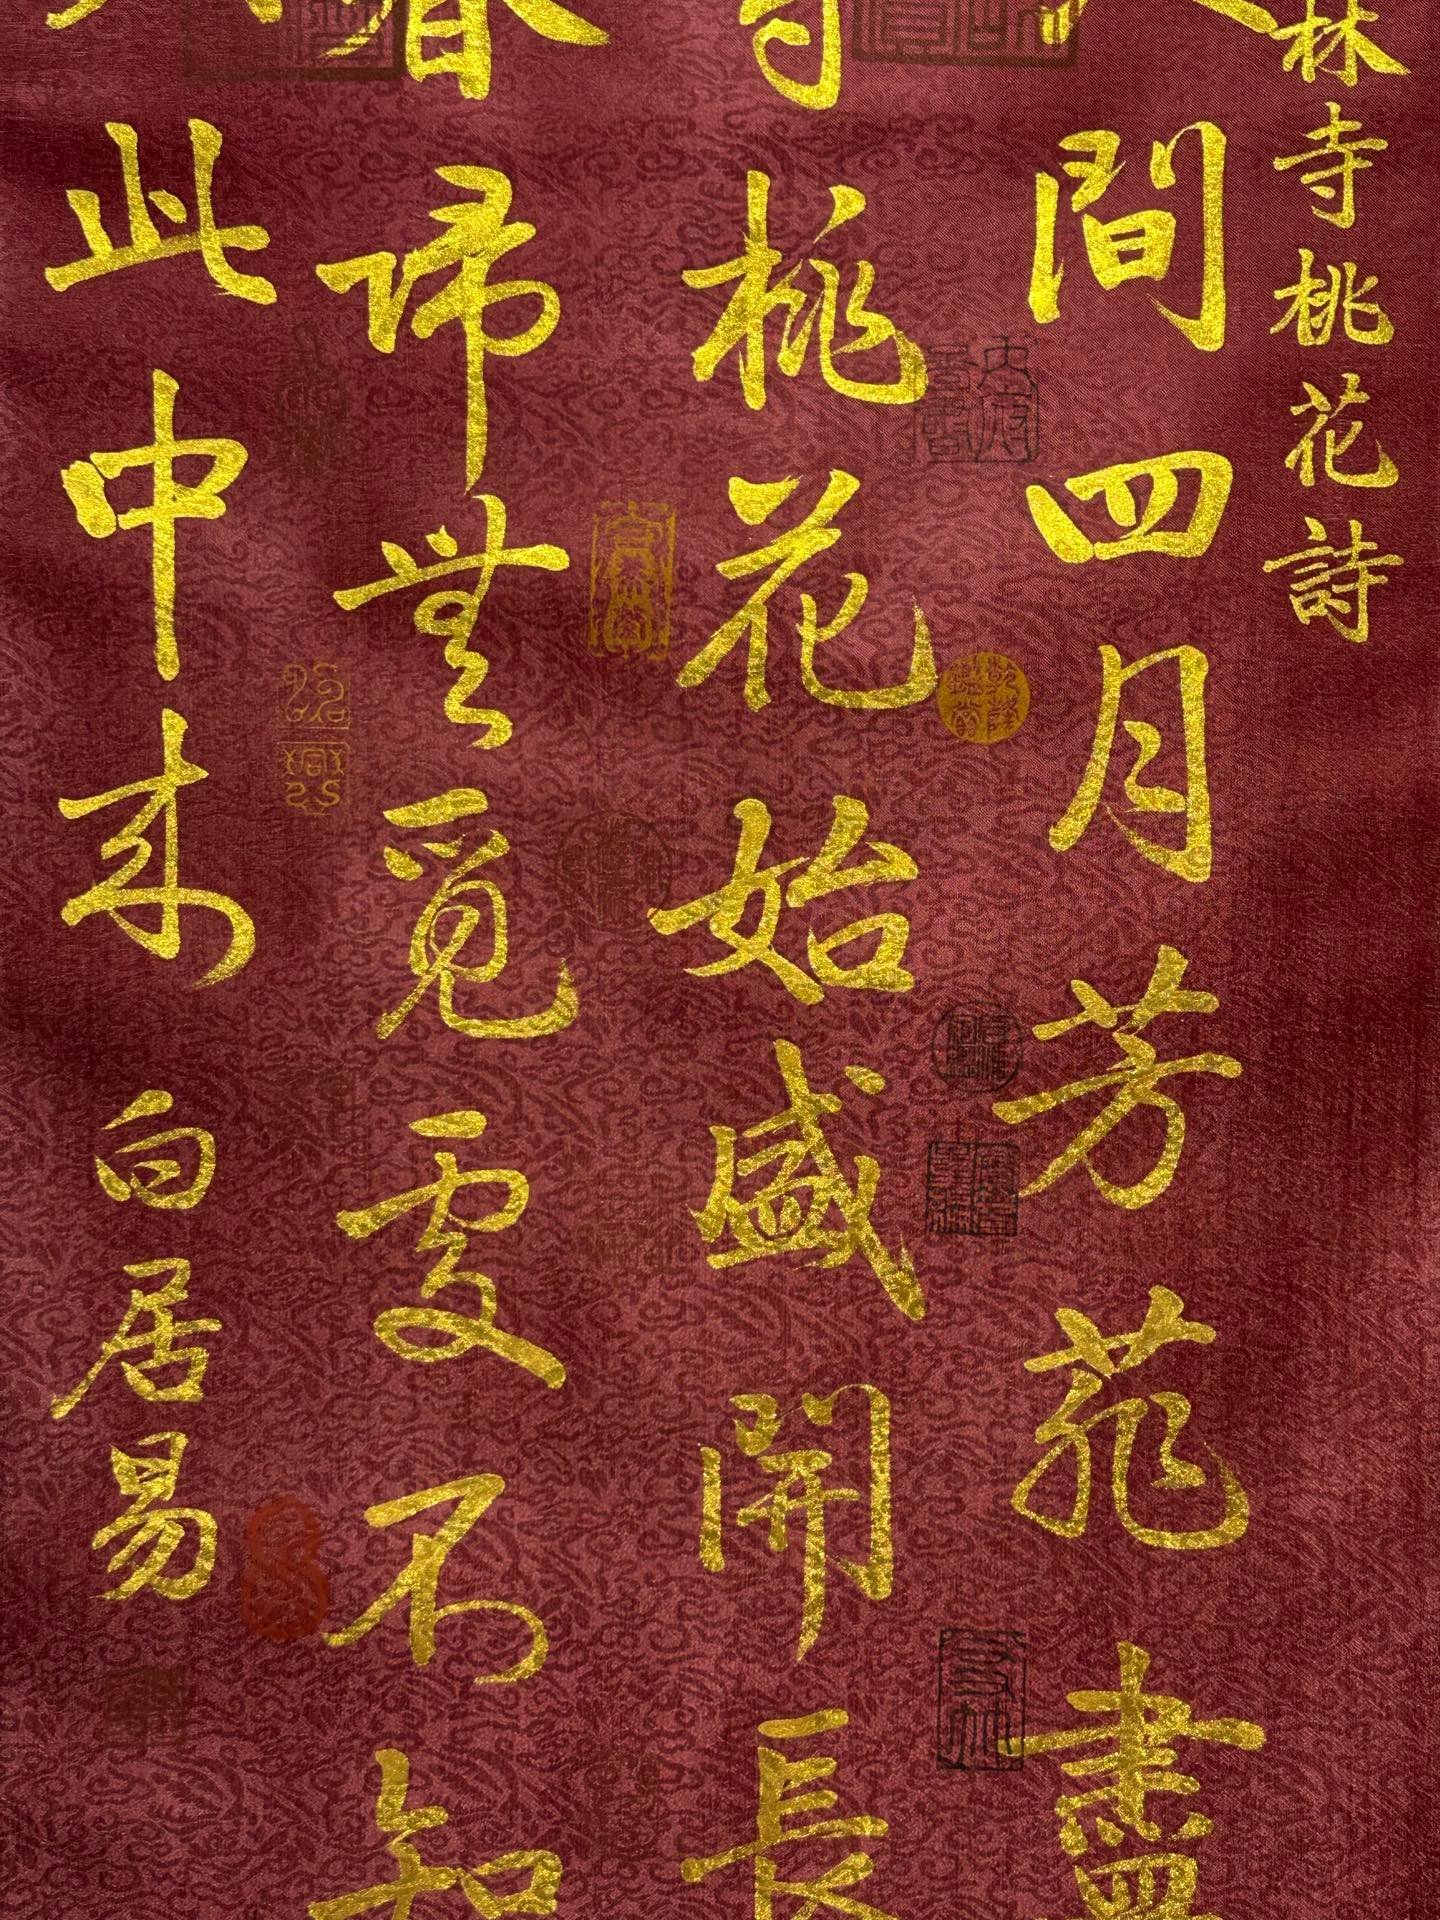 林寺桃花詩
間四月芳菲盡
寺桃花始盛開長
春歸無覓處不知
此中来
白居易